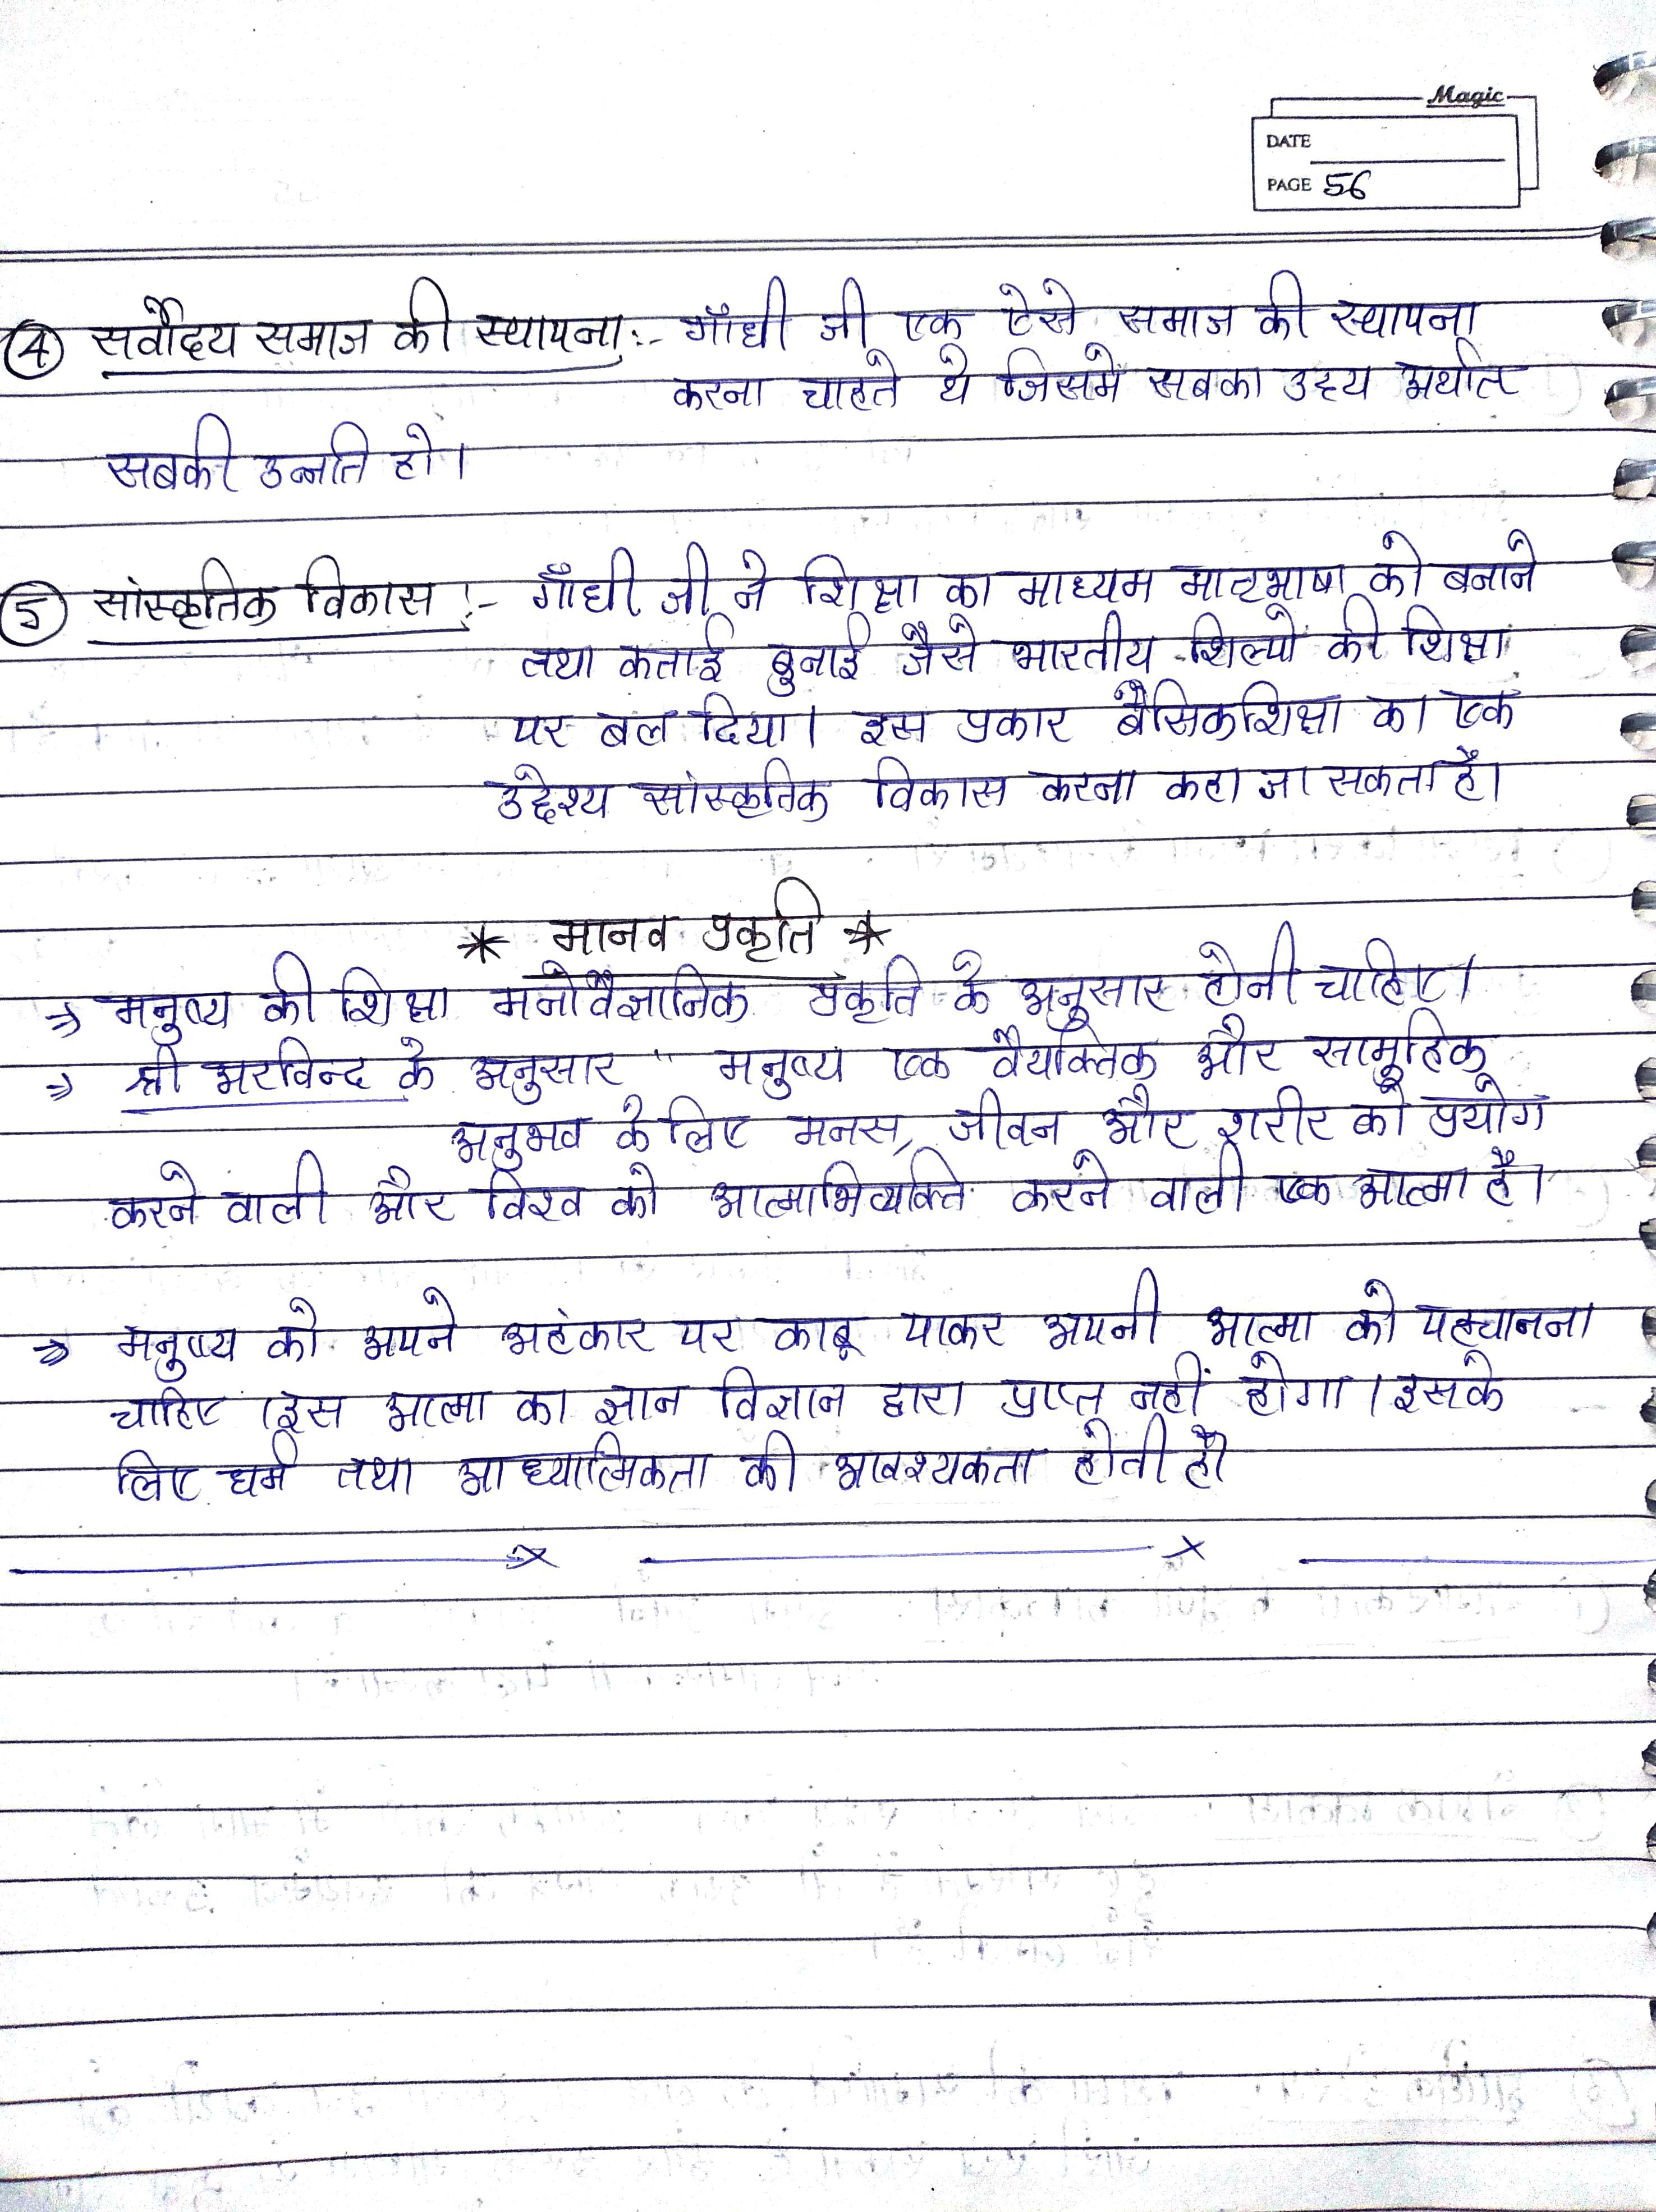 Magic
DATE
PAGE 56
④ सर्वोदय समाज की स्थापना:- गाँधी जी एक ऐसे समाज की स्थापना
करना चाहते थे जिसमें सबका उदय अर्थात
सबकी उन्नति हो।
⑤ सांस्कृतिक विकास :- गाँधी जी ने शिक्षा का माध्यम मातृभाषा को बनाने
तथा कताई बुनाई जैसे भारतीय शिल्पों की शिक्षा
पर बल दिया। इस प्रकार बेसिक शिक्षा का एक
उद्देश्य सांस्कृतिक विकास करना कहा जा सकता है।
* मानव प्रकृति *
⇒ मनुष्य की शिक्षा मनोवैज्ञानिक प्रकृति के अनुसार होनी चाहिए।
⇒ श्री अरविन्द के अनुसार " मनुष्य एक वैयक्तिक और सामुहिक
अनुभव के लिए मनस, जीवन और शरीर का प्रयोग
करने वाली और विश्व को आत्माभिव्यक्ति करने वाली एक आत्मा है।
⇒ मनुष्य को अपने अहंकार पर काबू पाकर अपनी आत्मा को पहचानना
चाहिए । इस आत्मा का ज्ञान विज्ञान द्वारा प्राप्त नहीं होगा । इसके
लिए धर्म तथा आध्यात्मिकता की आवश्यकता होती है।